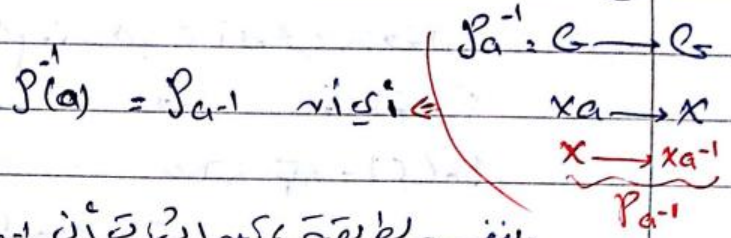 ρa⁻¹ : G → G
ρ⁻¹(a) = ρa-1 أي أن ⇐ xa → x
x → xa⁻¹
ρa-1
بنفس الطريقة يمكن إثبات أن